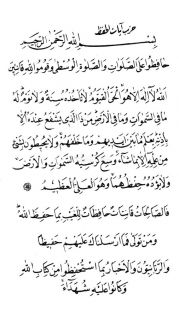 حزب آيات الحفظ
بِسْمِ اللَّهِ الرَّحْمَنِ الرَّحِيمِ
حَافِظُوا عَلَى الصَّلَوَاتِ وَالصَّلَوةِ الْوُسْطَى وَقُومُوا لِلَّهِ قَانِتِينَ
اللَّهُ لَا إِلَهَ إِلَّا هُوَ الْحَيُّ الْقَيُّومُ لَا تَأْخُذُهُ سِنَةٌ وَلَا نَوْمٌ لَهُ
مَا فِي السَّمَوَاتِ وَمَا فِي الْأَرْضِ مَنْ ذَا الَّذِي يَشْفَعُ عِنْدَهُ إِلَّا
بِإِذْنِهِ يَعْلَمُ مَا بَيْنَ أَيْدِيهِمْ وَمَا خَلْفَهُمْ وَلَا يُحِيطُونَ بِشَيْءٍ
مِنْ عِلْمِهِ إِلَّا بِمَا شَاءَ وَسِعَ كُرْسِيُّهُ السَّمَوَاتِ وَالْأَرْضَ
وَلَا يَؤُدُهُ حِفْظُهُمَا وَهُوَ الْعَلِيُّ الْعَظِيمُ
فَالصَّالِحَاتُ قَانِتَاتٌ حَافِظَاتٌ لِلْغَيْبِ بِمَا حَفِظَ اللَّهُ
وَمَنْ تَوَلَّى فَمَا أَرْسَلْنَاكَ عَلَيْهِمْ حَفِيظًا
وَالرَّبَّانِيُّونَ وَالْأَحْبَارُ بِمَا اسْتُحْفِظُوا مِنْ كِتَابِ اللَّهِ
وَكَانُوا عَلَيْهِ شُهَدَاءَ